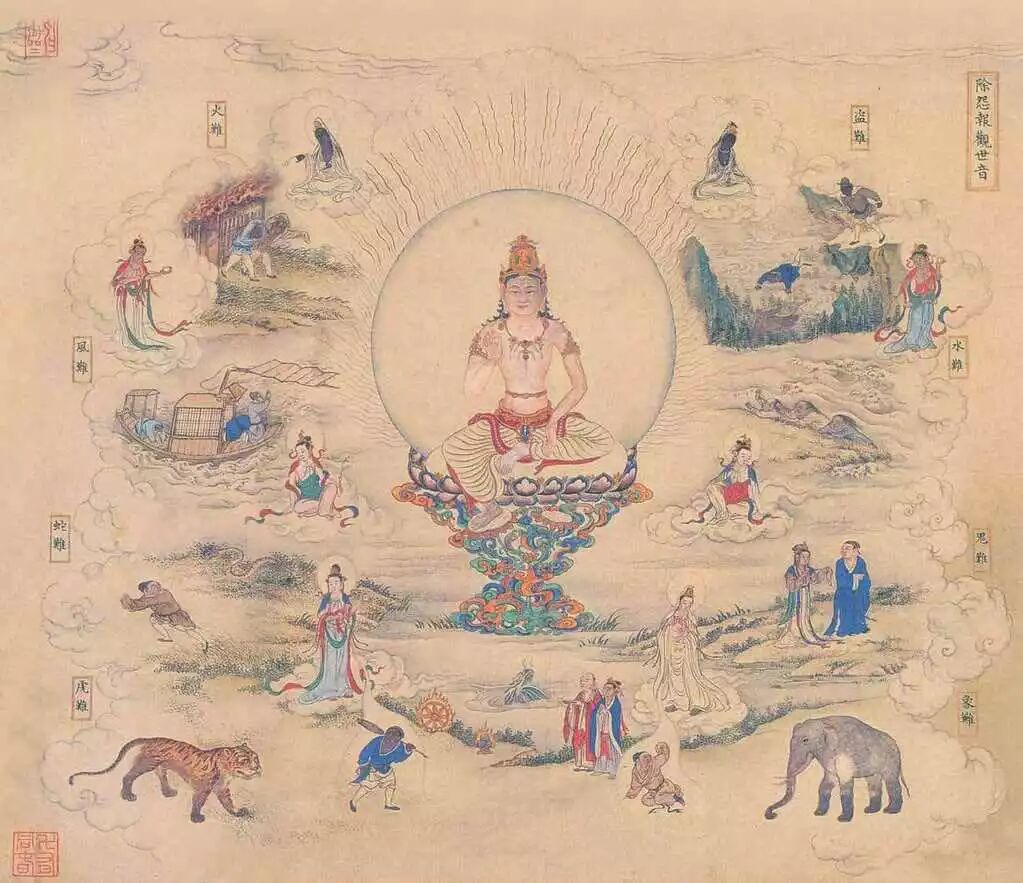 除怨報觀世音
盜難
火難
水難
風難
鬼難
蛇難
象難
虎難